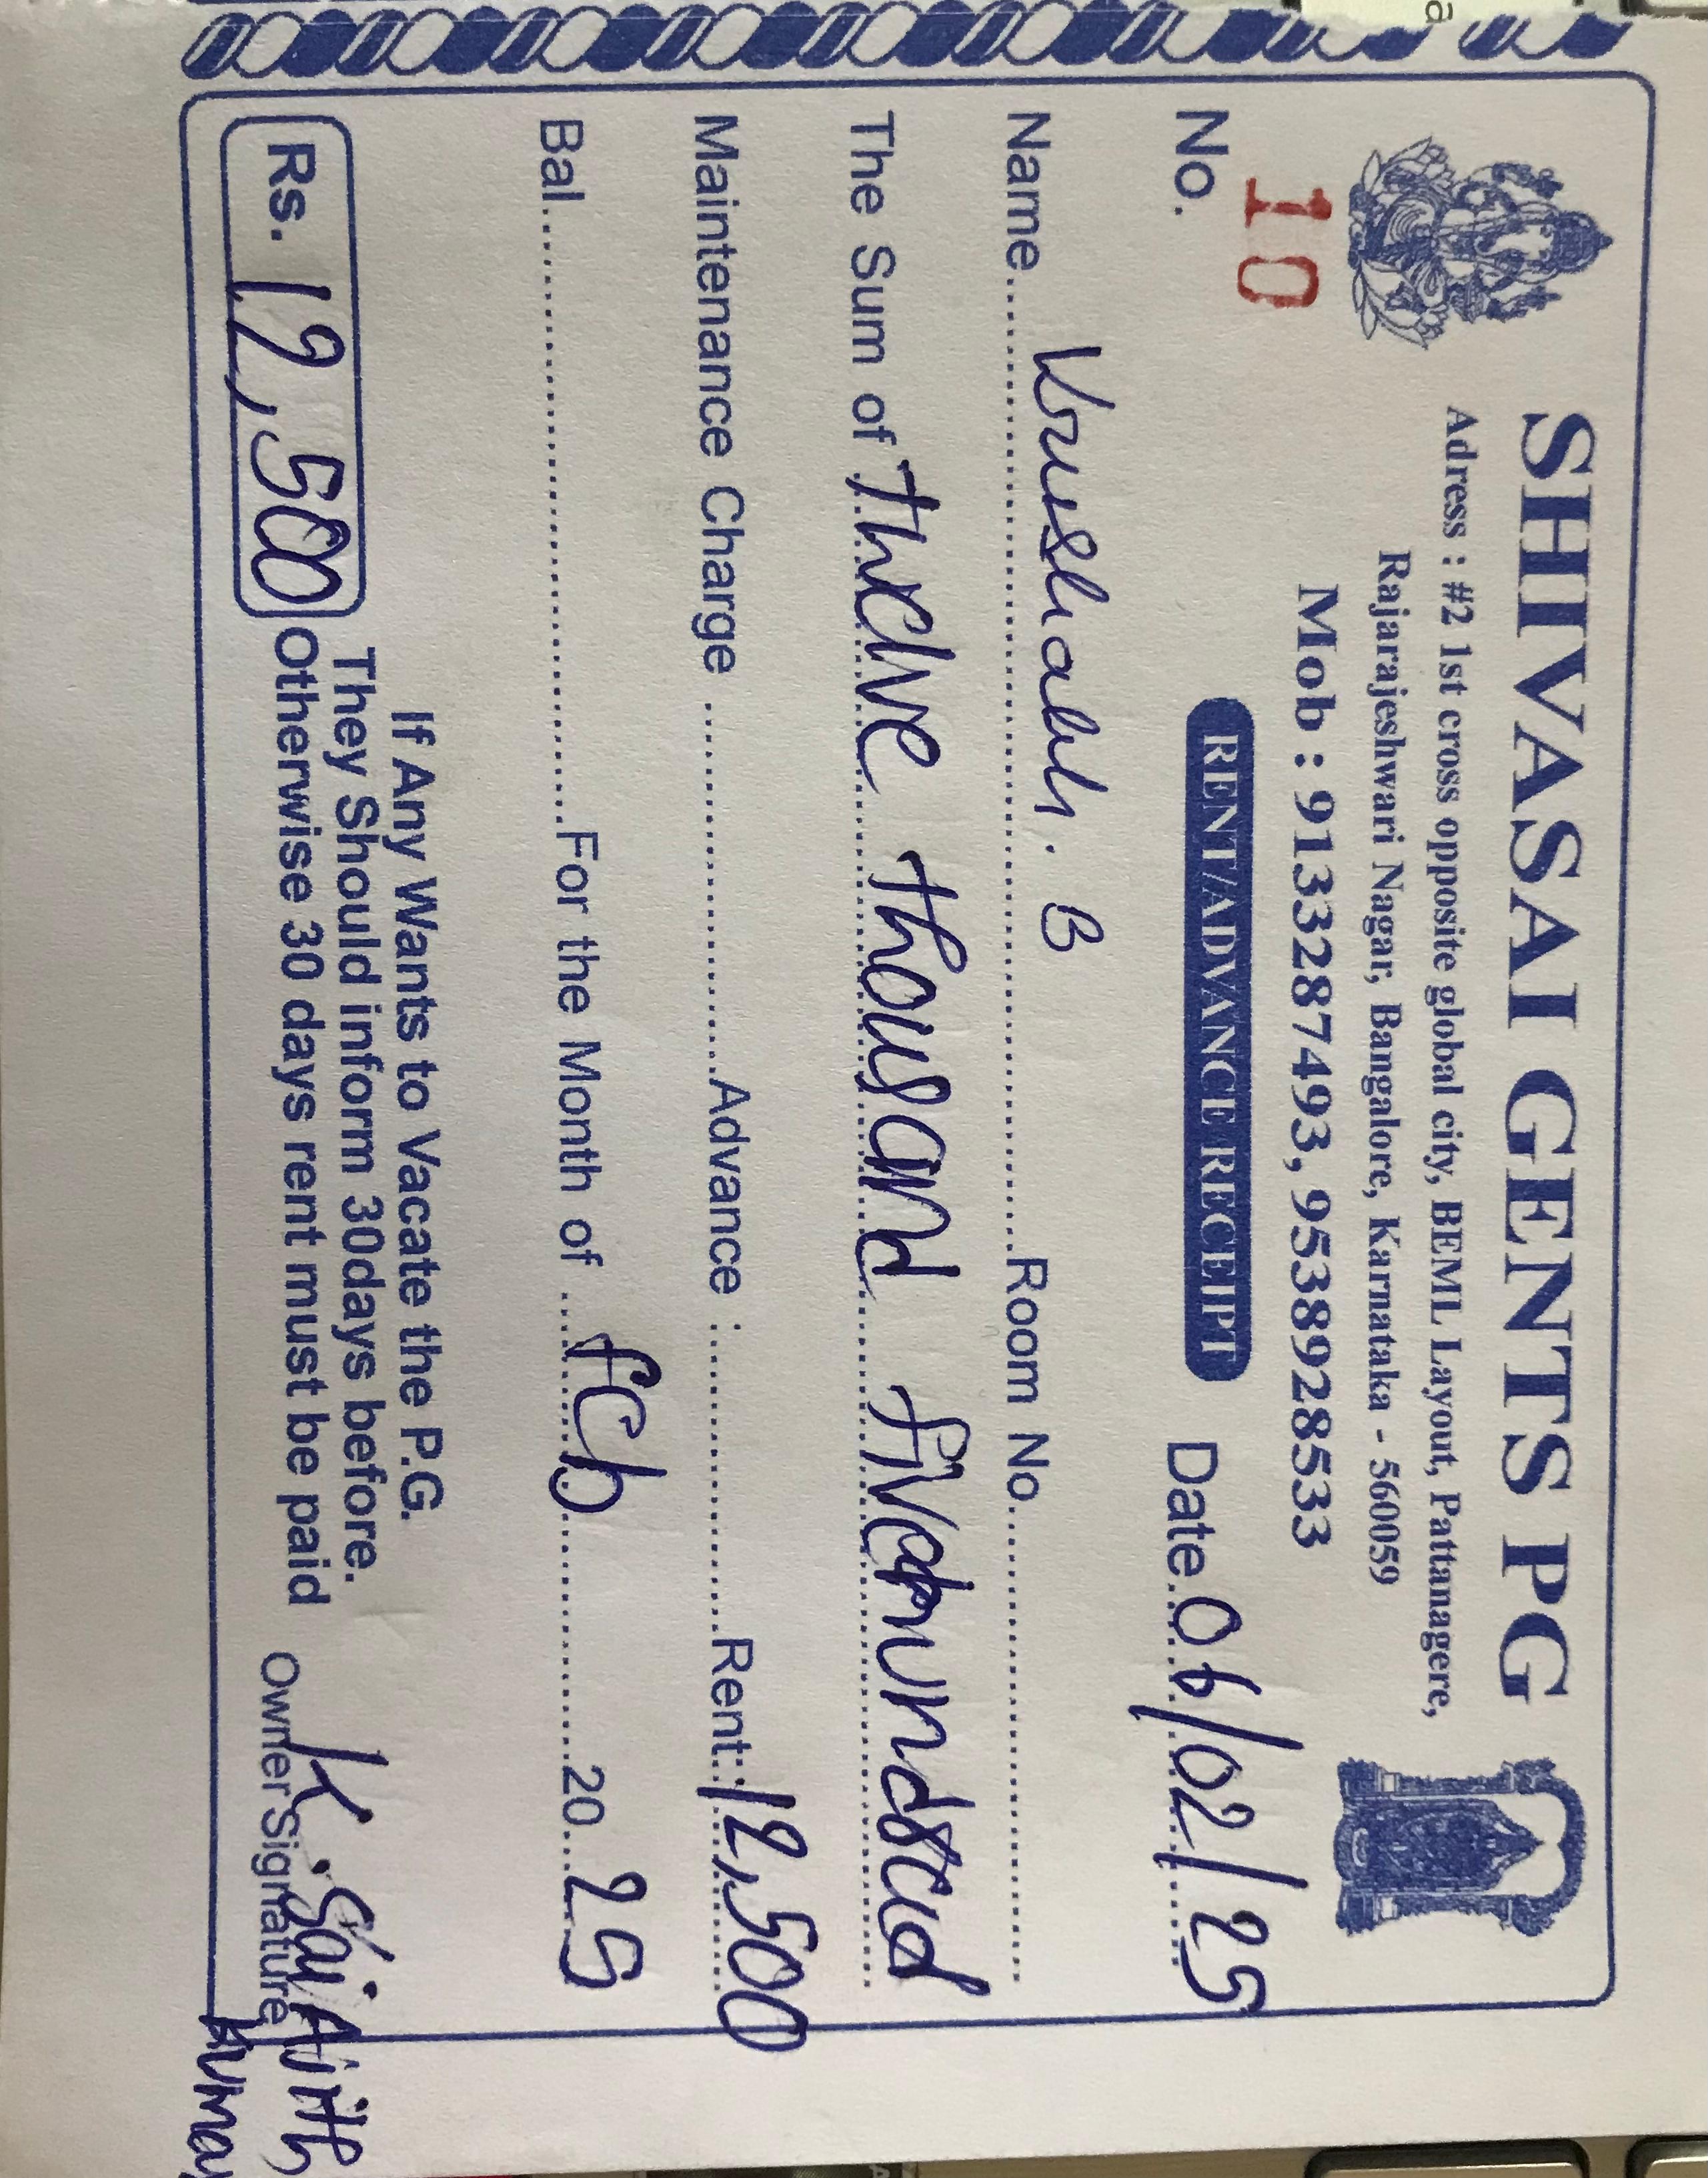 SHIVASAI GENTS PG
Adress : #2 1st cross opposite global city, BEML Layout, Pattanagere,
Rajarajeshwari Nagar, Bangalore, Karnataka - 560059
Mob : 9133287493, 9538928533
10
No. RENT/ADVANCE RECEIPT Date 06/02/25
Name B Room No
The Sum of Thousand
Maintenance Charge Advance : Rent: 12,500
Bal For the Month of feb 20 25
If Any Wants to Vacate the P.G.
They Should inform 30days before.
Rs. 12,500 Otherwise 30 days rent must be paid
K. Sai
Owner Signature